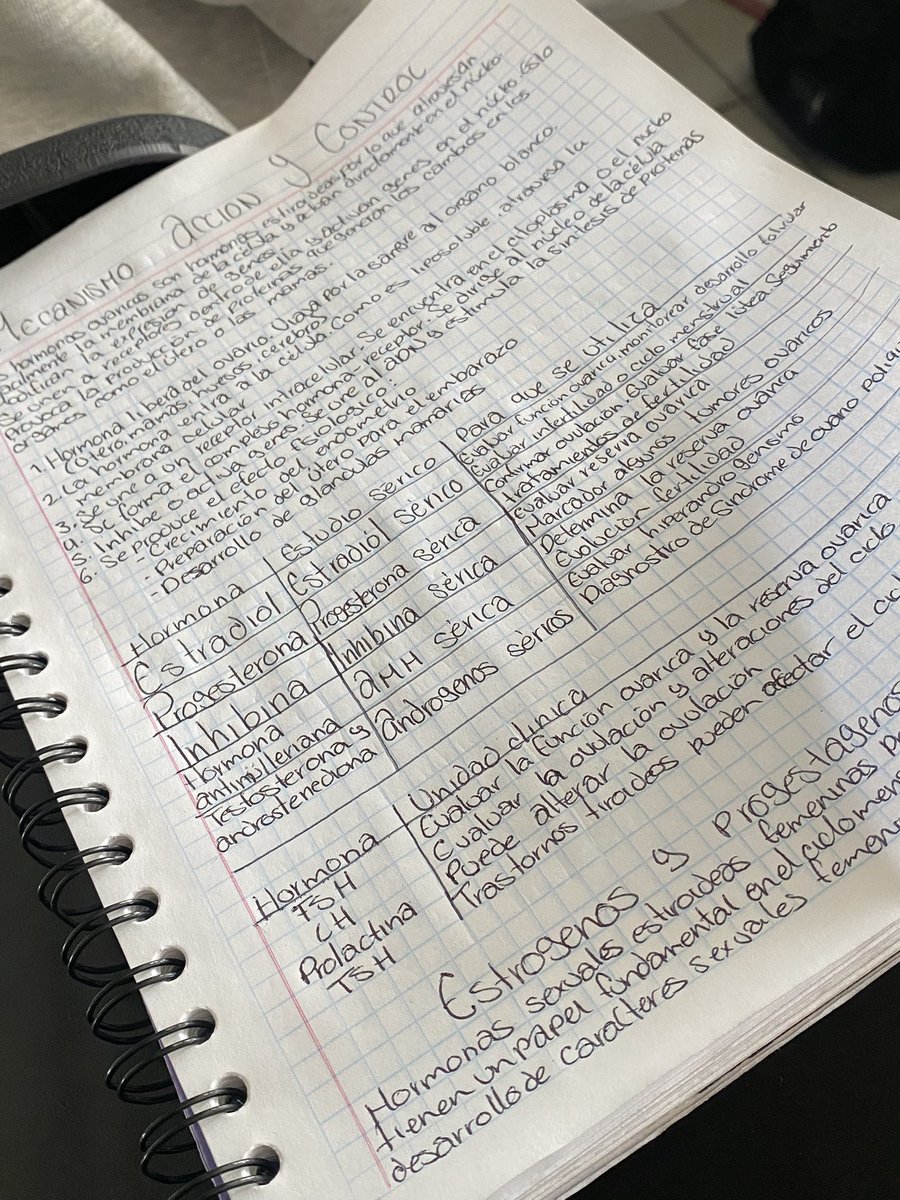 Mecanismo acción y control
hormonas ovaricas son hormonas esteroideas por lo que atraviesan
facilmente la membrana de la célula y actúan directamente en el núcleo
la expresión de genes.
Se unen a receptores dentro de ella y activan genes en el núcleo. Esto
provoca la producción de proteínas que generan los cambios en los
organos como el útero o las mamas.
1. Hormona liberd del ovario. Viaja por la sangre al organo blanco.
(Utero, mamas, huesos, cerebro)
2. La hormona entra a la célula como es liposoluble, atraviesa la
membrana celular
3. Se une a un receptor intracelular. Se encuentra en el citoplasma o el nucleo
4. Se forma el complejo hormona receptor. Se dirige al núcleo de la célula
5. Inhibe o activa genes se une al ADN y estimula la síntesis de proteinas
6. Se produce el efecto fisiológico
- Crecimiento del endometrio
- Preparación del útero para el embarazo
- Desarrollo de glandulas mamarias
Hormona Estudio sérico Para que se utiliza
Estradiol Estradiol sérico Evaluar función ovarica, monitorear desarrollo folicular
Evaluar infertilidad o ciclo menstrual
Progesterona Progesterona sérica Confirma ovulación Evaluar fase lútea Seguimiento
tratamientos de fertilidad
Inhibina Inhibina sérica Evaluar reserva ovarica
Marcador algunos tumores ovaricos
Hormona antimulleriana AMH sérica Determina la reserva ovarica
Evolución fertilidad
Testosterona y androstenediona Andrógenos séricos Evaluar hiperandrogenismo
Diagnostico de Sindrome de ovario
Hormona Unidad clinica
FSH Evaluar la función ovarica y la reserva ovarica
LH Evaluar la ovulación y alteraciones del ciclo
Prolactina Puede alterar la ovulación
TSH Trastornos tiroideos pueden afectar el
Estrogenos y Progestagenos
Hormonas sexuales estroideas femeninas
tienen un papel fundamental en el ciclo
desarrollo de caracteres sexuales